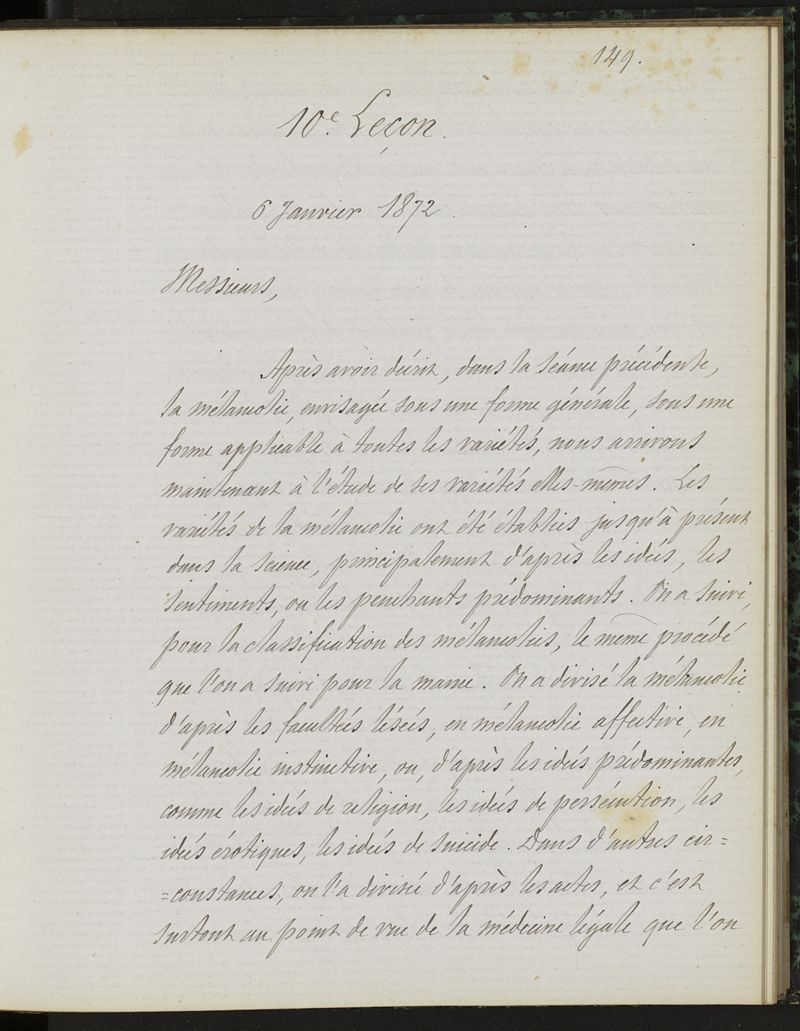 149.
10e. Leçon.
6 Janvier 1872.
Messieurs,
Après avoir décrit, dans la séance précédente,
la mélancolie, envisagée sous une forme générale, sous une
forme applicable à toutes les variétés, nous arrivons
maintenant à l'étude de ses variétés elles-mêmes. Les
variétés de la mélancolie ont été établies jusqu'à présent
dans la science, principalement d'après les idées, les
sentiments, ou les penchants prédominants. On a suivi,
pour la classification des mélancolies, le même procédé
que l'on a suivi pour la manie. On a divisé la mélancolie
d'après les facultés lésées, en mélancolie affective, en
mélancolie instinctive, ou, d'après les idées prédominantes,
comme les idées de religion, les idées de persécution, les
idées érotiques, les idées de suicide. Dans d'autres cir=
=constances, on l'a divisée d'après les actes, et c'est
surtout au point de vue de la médecine légale que l'on